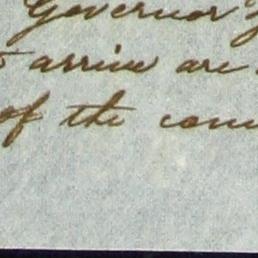 Governor
arrive are
of the